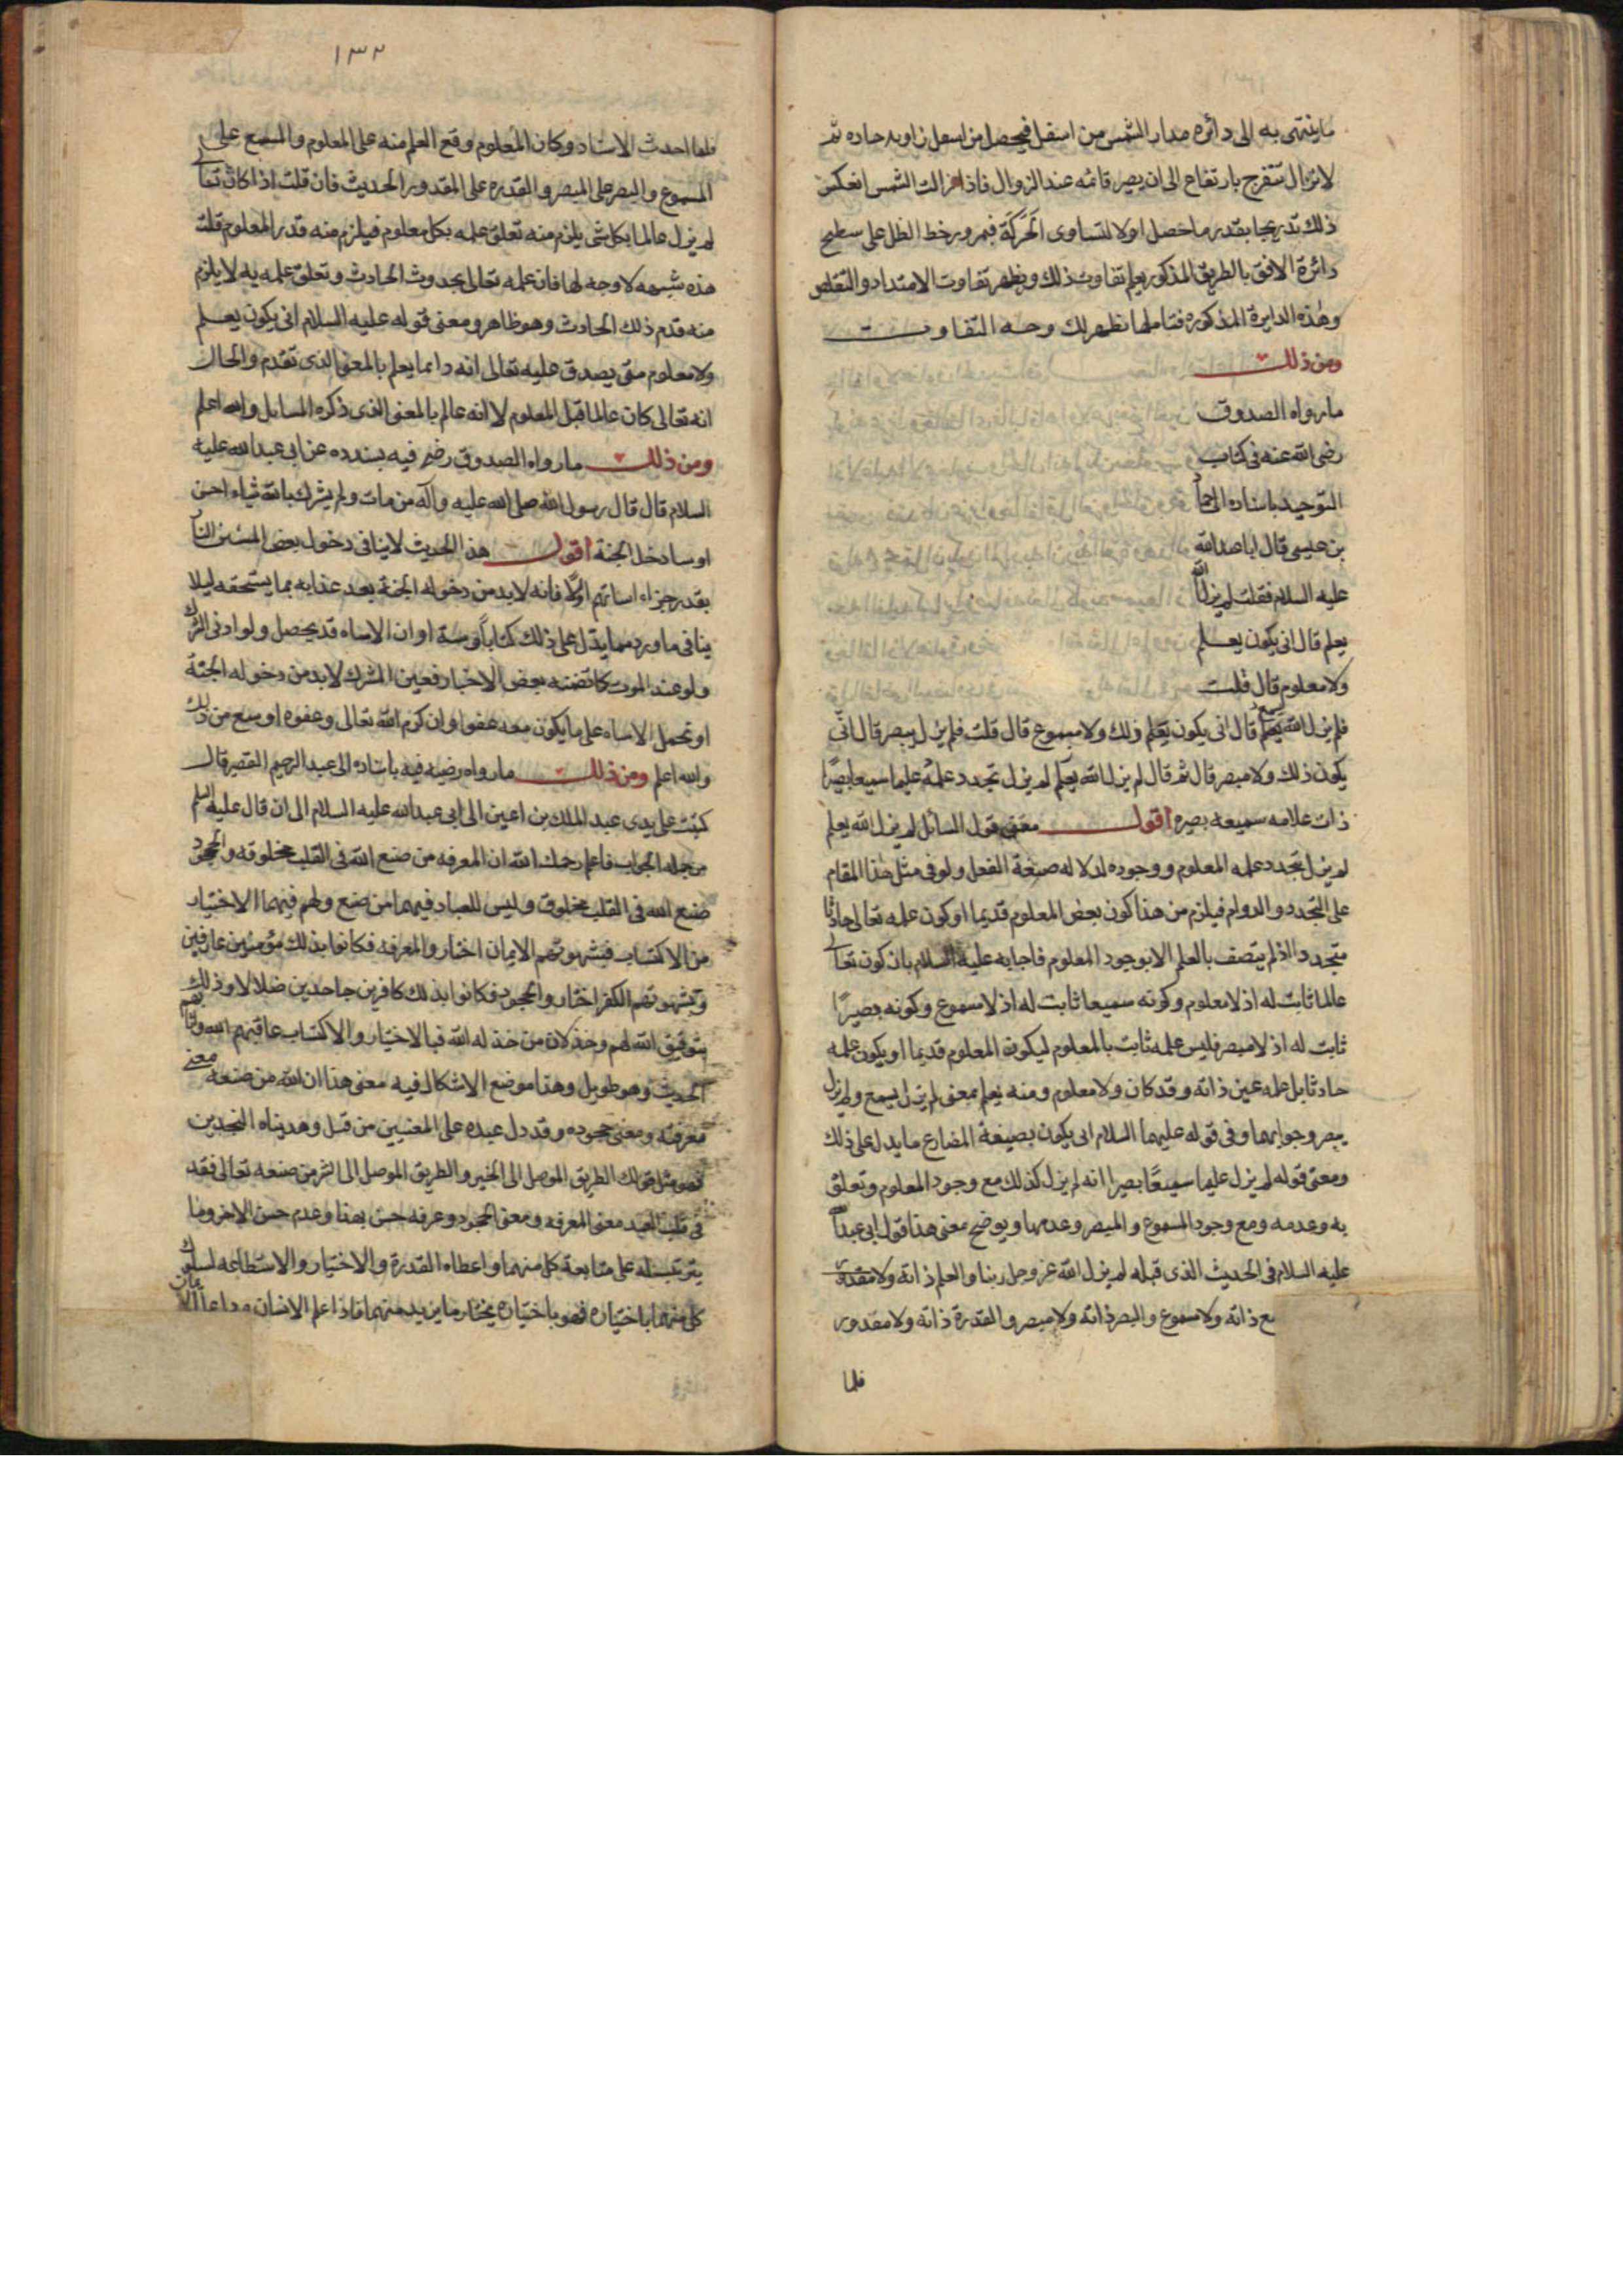 ما ينتهى به الى دائره مدار الشمس من اسفل فيحصل من اسفل زاويه حاده ثم
لا تزال تنفرج بارتفاع الى ان يصير قائمه عند الزوال فاذا زالت الشمس انعكس
ذلك تدريجا بقدر ما حصل اولا لتساوى الحركة فبمرور خط الظل على سطح
دائرة الافق بالطريق المذكور يعلم تفاوت ذلك ويظهر تفاوت الامتداد والتقلص
وهذه الدايرة المذكوره فتاملها يظهر لك وجه التفاوت
ومن ذلك
ما رواه الصدوق
رضى الله عنه فى كتاب
التوحيد باسناده الى حماد
بن عيسى قال ابا عبد الله
عليه السلام فقلت لم يزل الله
يعلم قال انى يكون يعلم
ولا معلوم قال قلت
فلم يزل الله يسمع قال انى يكون ذلك ولا مسموع قال قلت فلم يزل يبصر قال انى
يكون ذلك ولا مبصر قال ثم قال لم يزل الله يعلم لم يزل تجدد علمه عليما سميعا بصيرا
ذات علامه سميعه بصيره اقول معنى قول السائل لم يزل الله يعلم
لم يزل تجدد علمه المعلوم ووجوده لدلاله صيغة الفعل ولو فى مثل هذا المقام
على التجدد والدوام فيلزم من هذا كون بعض المعلوم قديما او كون علمه تعالى حادثا
متجددا اذ لم يتصف بالعلم الا بوجود المعلوم فاجابه عليه السلام بان كون تعالى
عالما ثابت له اذ لا معلوم وكونه سميعا ثابت له اذ لا مسموع وكونه بصيرًا
ثابت له اذ لا مبصر فليس علمه ثابت بالمعلوم ليكون المعلوم قديما او يكون علمه
حادثا بل علمه عين ذاته وقد كان ولا معلوم ومنه يعلم معنى لم يزل يسمع ولم يزل
يبصر وجوابهما وفى قوله عليهما السلام انى يكون بصيغة المضارع ما يدل على ذلك
ومعنى قوله لم يزل عليما سميعًا بصيرا انه لم يزل كذلك مع وجود المعلوم وتعلق
به وعدمه ومع وجود المسموع والمبصر وعدمهما ويوضح معنى هذا قول ابى عبد الله
عليه السلام فى الحديث الذى قبله لم يزل الله عز وجل ربنا والعلم ذاته ولا
ذاته ولا مسموع والبصر ذاته ولا مبصر والقدرة ذاته ولا مقدور
فلما
١٣٢
فلما احدث الاشياء وكان المعلوم وقع العلم منه على المعلوم والسمع على
المسموع والبصر على المبصر والقدره على المقدور الحديث فان قلت اذا كان تعالى
لم يزل عالما بكل شى يلزم منه تعلق علمه بكل معلوم فيلزم منه قدم المعلوم قلت
هذه شبهه لا وجه لها فان علمه تعالى بحدوث الحادث وتعلق علمه به لا يلزم
منه قدم ذلك الحادث وهو ظاهر ومعنى قوله عليه السلام انى يكون يعلم
ولا معلوم متى يصدق عليه تعالى انه دائما يعلم بالمعنى الذى تقدم والحال
انه تعالى كان عالما قبل المعلوم لا انه عالم بالمعنى الذى ذكره السايل والله اعلم
ومن ذلك ما رواه الصدوق رضى فيه بسنده عن ابى عبد الله عليه
السلام قال قال رسول الله صلى الله عليه وآله من مات ولم يشرك بالله شياء احسن
او ساء دخل الجنة اقول هذا الحديث لا ينافى دخول بعض المسئين النار
بقدر جزاء اساتهم اولًا فانه لا بد من دخوله الجنة بعد عذابه بما يستحقه ليلا
ينافى ما ورد مما يدل على ذلك كتابًا وسنة او ان الاساه قد يحصل ولو ادنى الشرك
ولو عند الموت كما تضمنه بعض الاخبار فعين المشرك لا بد من دخوله الجنة
او تحمل الاساه على ما يكون معه عفو او ان كرم الله تعالى وعفوه اوسع من ذلك
والله اعلم ومن ذلك ما رواه رضيه فيه باسناده الى عبد الرحيم القصير قال
كتبت على يدى عبد الملك بن اعين الى ابى عبد الله عليه السلام الى ان قال عليه السلم
من جمله الجواب فاعلم رحمك الله ان المعرفه من صنع الله فى القلب مخلوقه والجحود
صنع الله فى القلب مخلوق وليس للعباد فيهما من صنع ولهم فيهما الاختيار
من الاكتساب فبشهوتهم الايمان اختاروا المعرفه فكانوا بذلك مؤمنين عارفين
وبشهوتهم الكفر اختاروا الجحود فكانوا بذلك كافرين جاحدين ضلالا وذلك
بتوفيق الله لهم وخذلان من خذله الله فبالاختيار والاكتساب عاقبهم الله واثابهم
الحديث وهو طويل وهذا موضع الاشكال فيه معنى هذا ان الله من صنعه معنى
معرفته ومعنى جحوده وقد دل عبده على المعنيين من قبل وهديناه النجدين
فهو مثل قولك الطريق الموصل الى الخير والطريق الموصل الى الشر من صنعه تعالى فقد
فى قلب العبد معنى المعرفه ومعنى الجحود وعرفه حسن هذا وعدم حسن الاخر وما
يترتب له على متابعة كل منهما واعطاه القدرة والاختيار والاستطاعه لسلوك
كل منهما باختياره فهو باختياره يختار ما يريد منهما فاذا علم الانسان